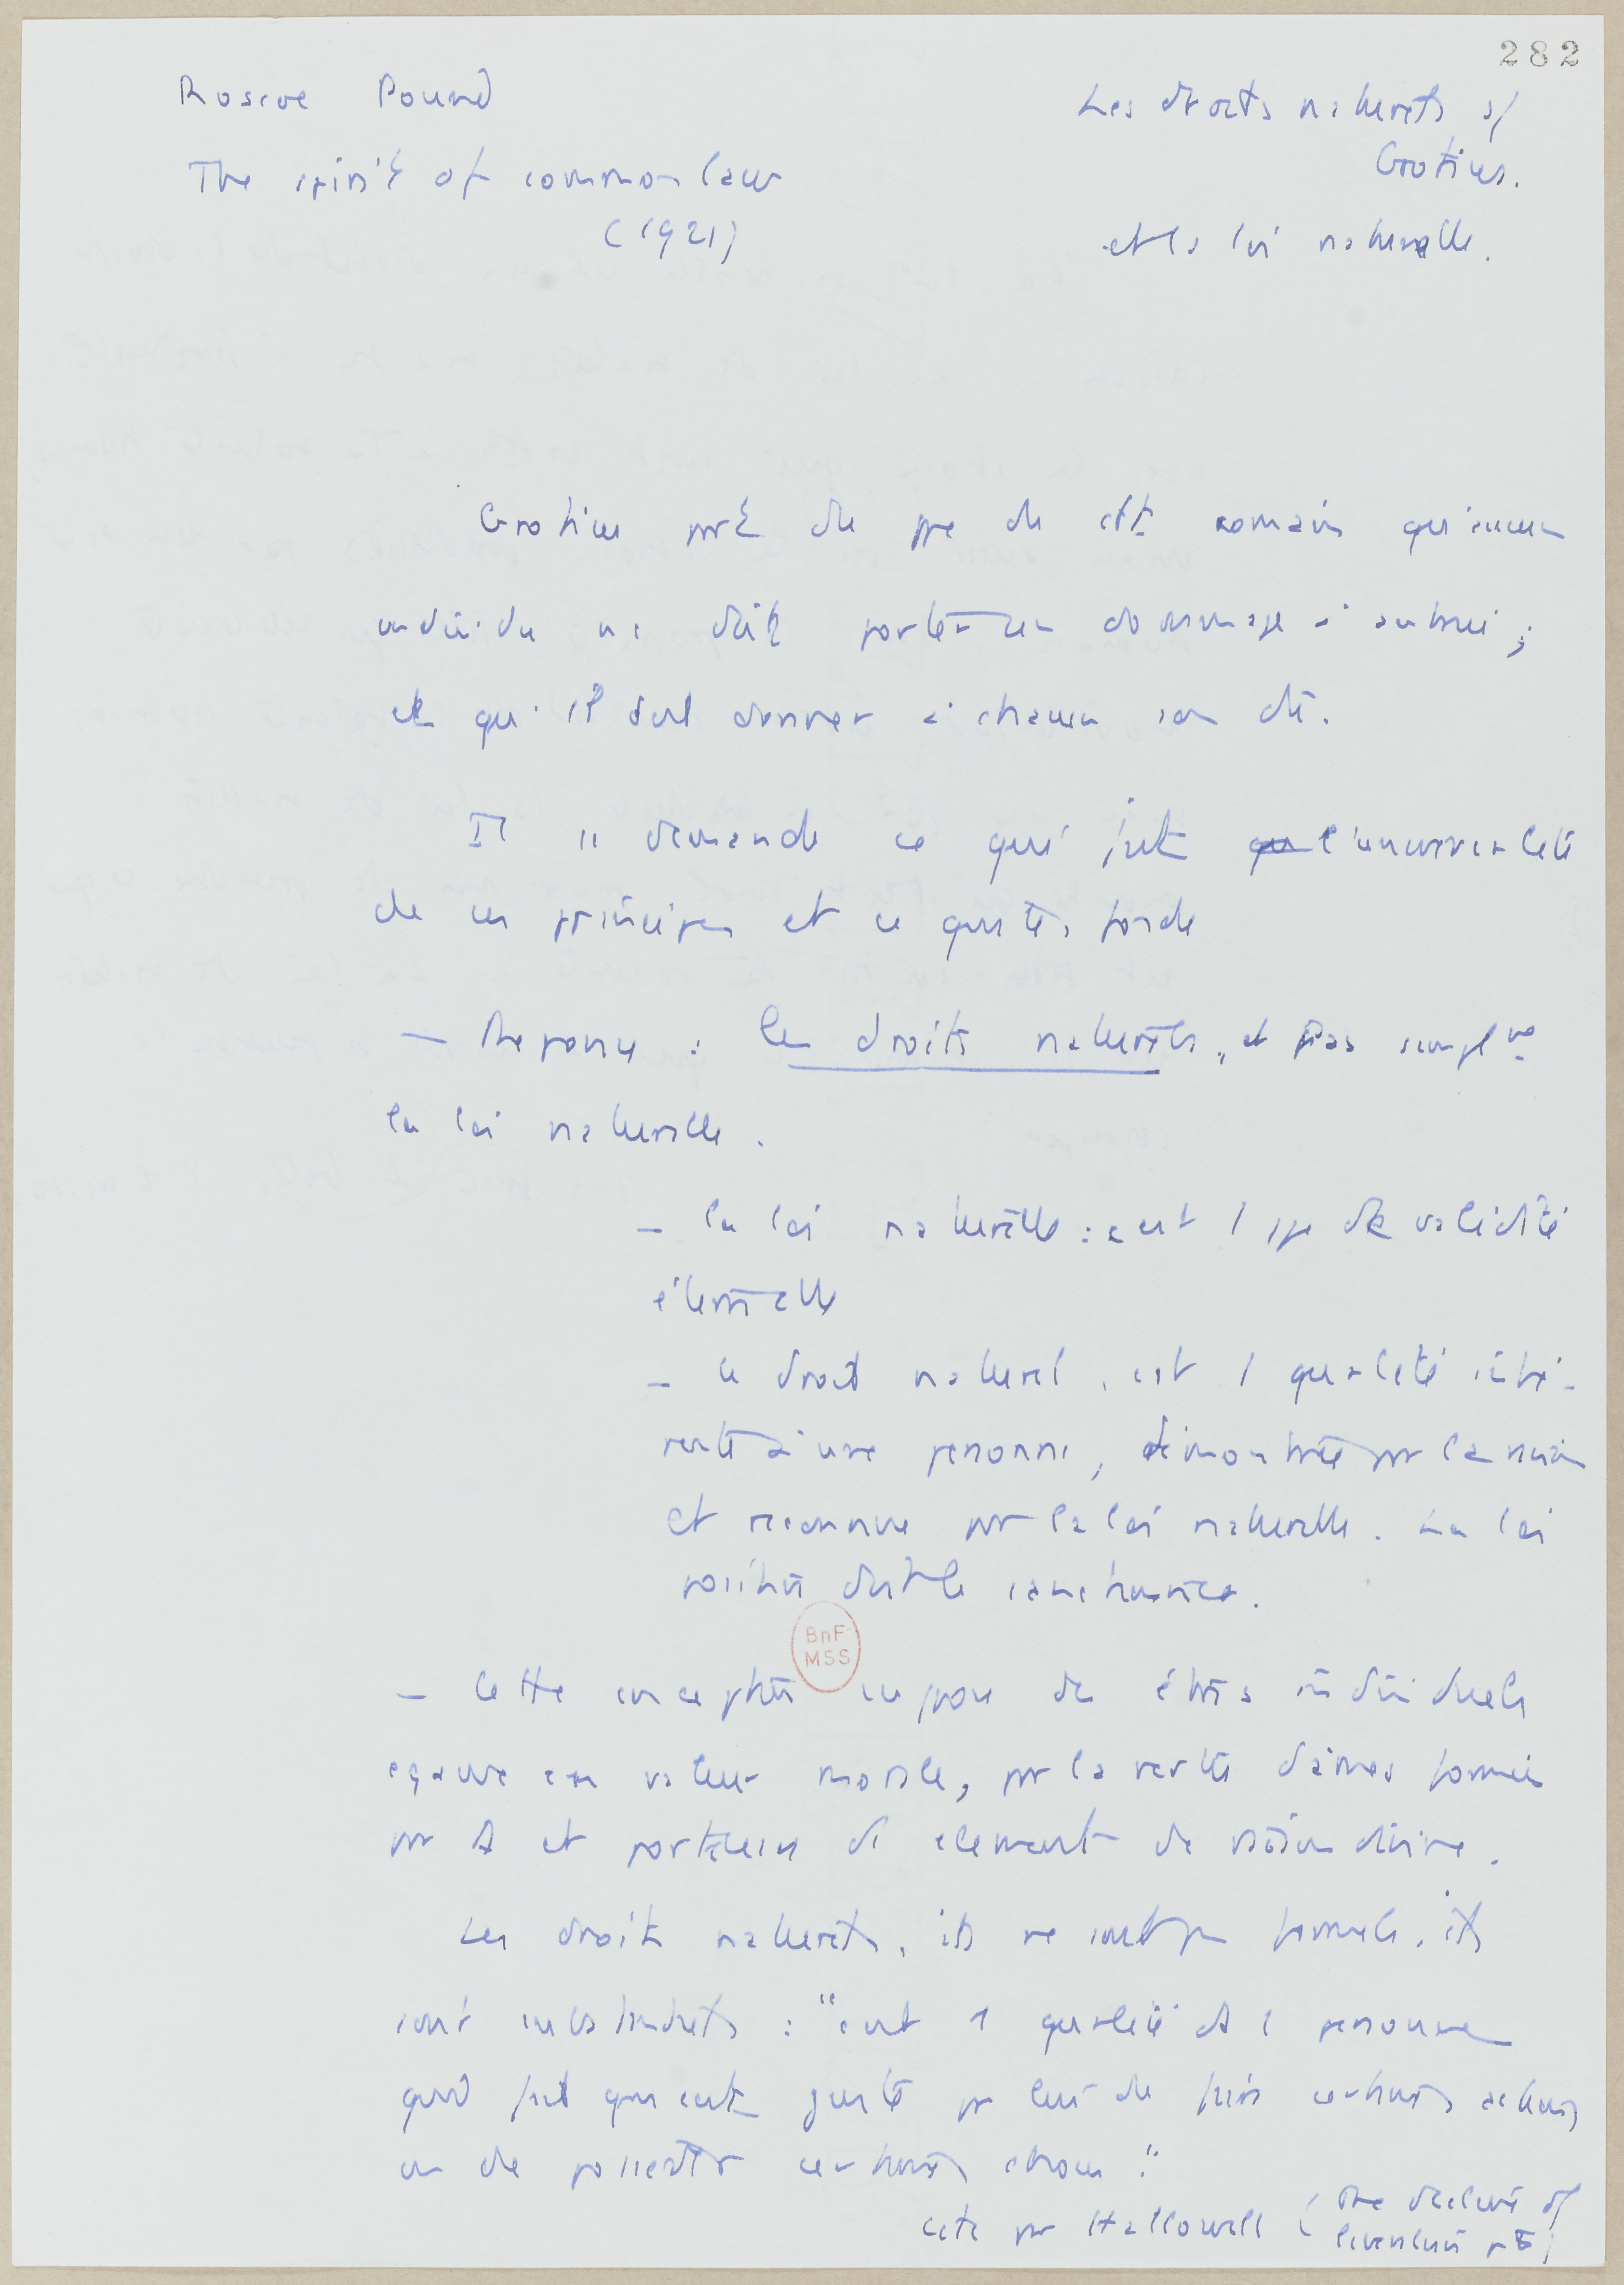 282
Roscoe Pound
The spirit of common law
(1921)
Les droits naturels s/
Grotius.
et la loi naturelle.
Grotius part du ppe du dt romain qu'aucun
individu ne doit porter un dommage à autrui ;
et qu'il doit donner à chacun son dû.
Il se demande ce qui fait qu l'universalité
de ces principes et ce qui les fonde
– Réponse : les droits naturels, et pas simplt
la loi naturelle.
– la loi naturelle : c'est 1 de validité
éternelle
– le droit naturel, est 1 qualité inhé-
rente à une personne, démontrée par la raison
et reconnue par la loi naturelle. La loi
positive doit le
BnF
MSS
– Cette conception suppose des êtres individuels
égaux en valeur morale, par la vertu d'âmes formées
par D et porteuses d'élements de raison divine.
Les droits naturels, ils ne sont pas formels, ils
sont substantiels : "c'est 1 qualité d'1 personne
qui fait qu'il est juste pr lui de faire certaines actions
ou de posséder certaines choses".
cité par Hallowell (The decline of
liberalism p 5)